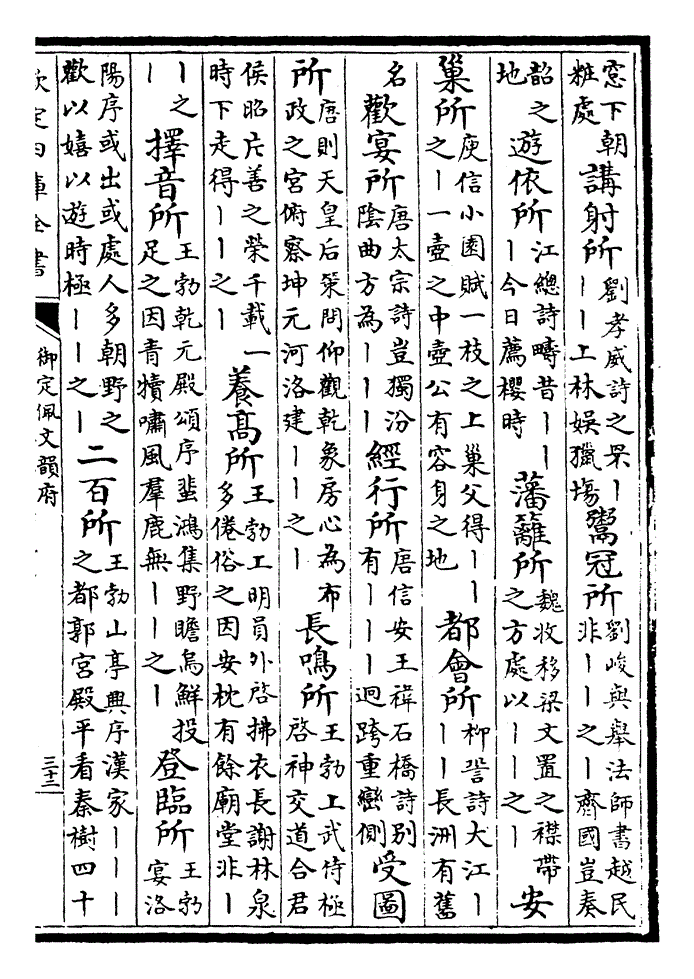 窓下朝粧處 講射所 劉孝威詩之罘丨丨丨上林娱獵塲 鬻冠所 劉峻與舉法師書越民非丨丨之丨齊國豈奏
韶之地 遊依所 江總詩疇昔丨丨丨今日薦櫻時 藩籬所 魏收移梁文置之襟帶之方處以丨丨之丨 安
巢所 庾信小園賦一枝之上巢父得丨丨之丨一壺之中壺公有容身之地 都會所 柳䛒詩大江丨丨丨長洲有舊
名 歡宴所 唐太宗詩豈獨汾陰曲方為丨丨丨 經行所 唐信安王禕石橋詩别有丨丨丨迥跨重巒側 受圖
所 唐則天皇后策問仰觀乾象房心為布政之宫俯察坤元河洛建丨丨之丨 長鳴所 王勃上武侍極啓神交道合君
侯昭片善之榮千載一時下走得丨丨之丨 養髙所 王勃上明員外啓拂衣長謝林泉多倦俗之因安枕有餘廟堂非丨
丨之丨 擇音所 王勃乾元殿頌序蜚鴻集野瞻烏鮮投足之因青犢嘯風羣鹿無丨丨之丨 登臨所 王勃宴洛
陽序或出或處人多朝野之歡以嬉以遊時極丨丨之丨 二百所 王勃山亭興序漢家丨丨丨之都郭宫殿平看秦樹四十
欽定四庫全書
御定佩文韻府
三十二